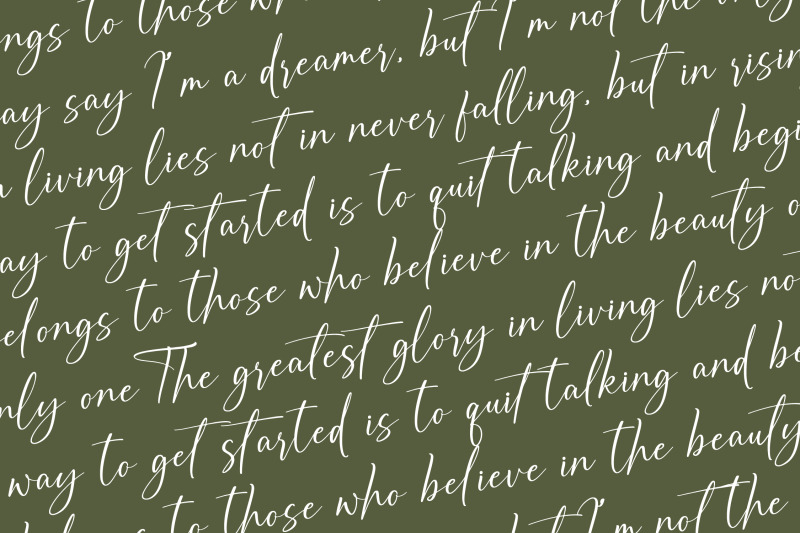 ngs to those
ay say I'm a dreamer, but I'm not the only
living lies not in never falling, but in risin
ay to get started is to quit talking and begi
elongs to those who believe in the beauty o
nly one The greatest glory in living lies no
way to get started is to quit talking and be
to those who believe in the beauty
but I'm not the